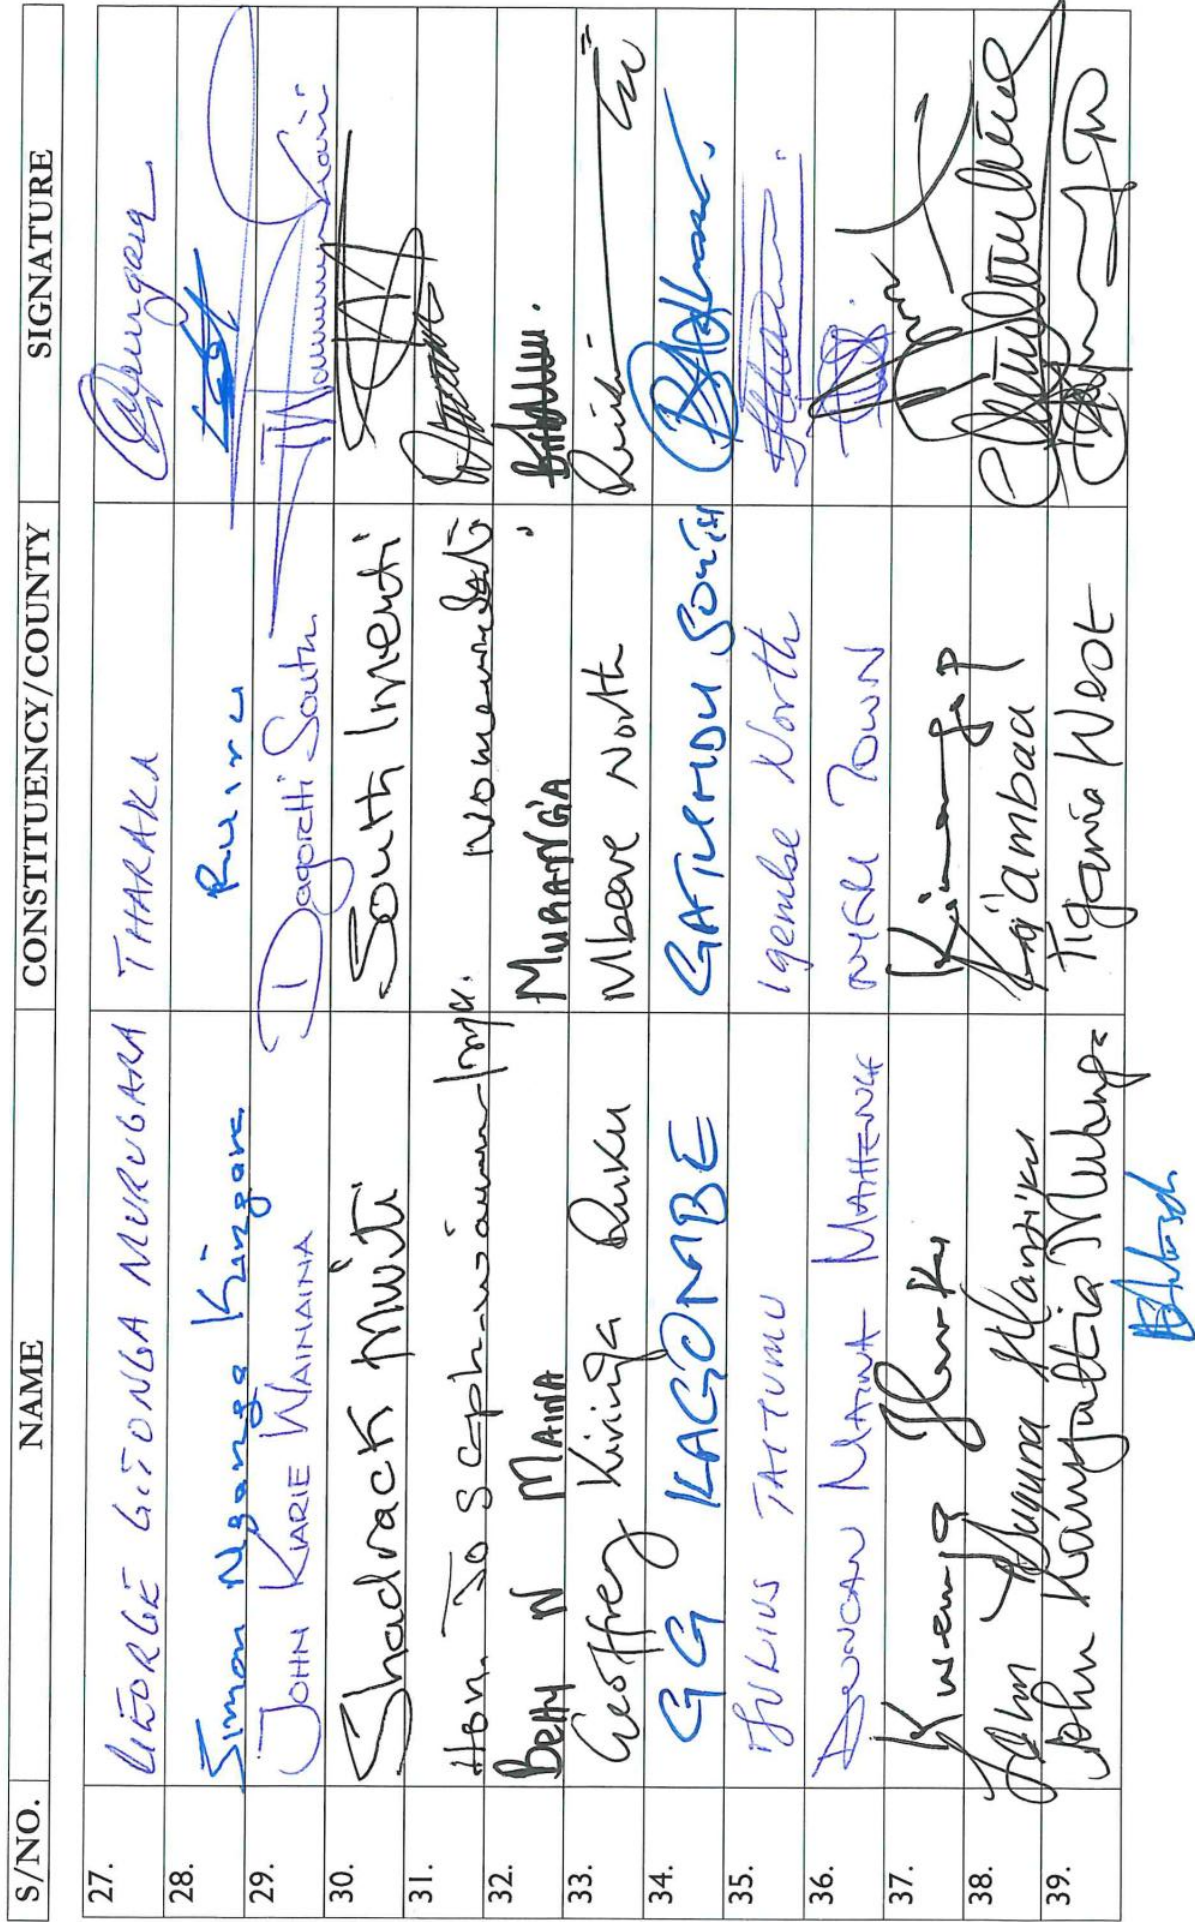 S/NO. NAME CONSTITUENCY/COUNTY SIGNATURE
27. GEORGE GITONGA MURUGARA THARAKA
28. Simon Nganga Kingara Ruiru
29. JOHN KIARIE WAINAINA Dagoretti South
30. Shadrack Mwiti South Imenti
31. Hon. Nomenated
32. Betty N MAINA MURANG'A
33. Geoffrey Kiringa Ruku Mbeere North
34. GG KAGOMBE GATUNDU SOUTH
35. JULIUS TAITUMU Igembe North
36. DUNCAN MAINA MATHENGE NYERI TOWN
37.
38. John Njuguna Wanjiku Kiambaa
39. John Tigania West